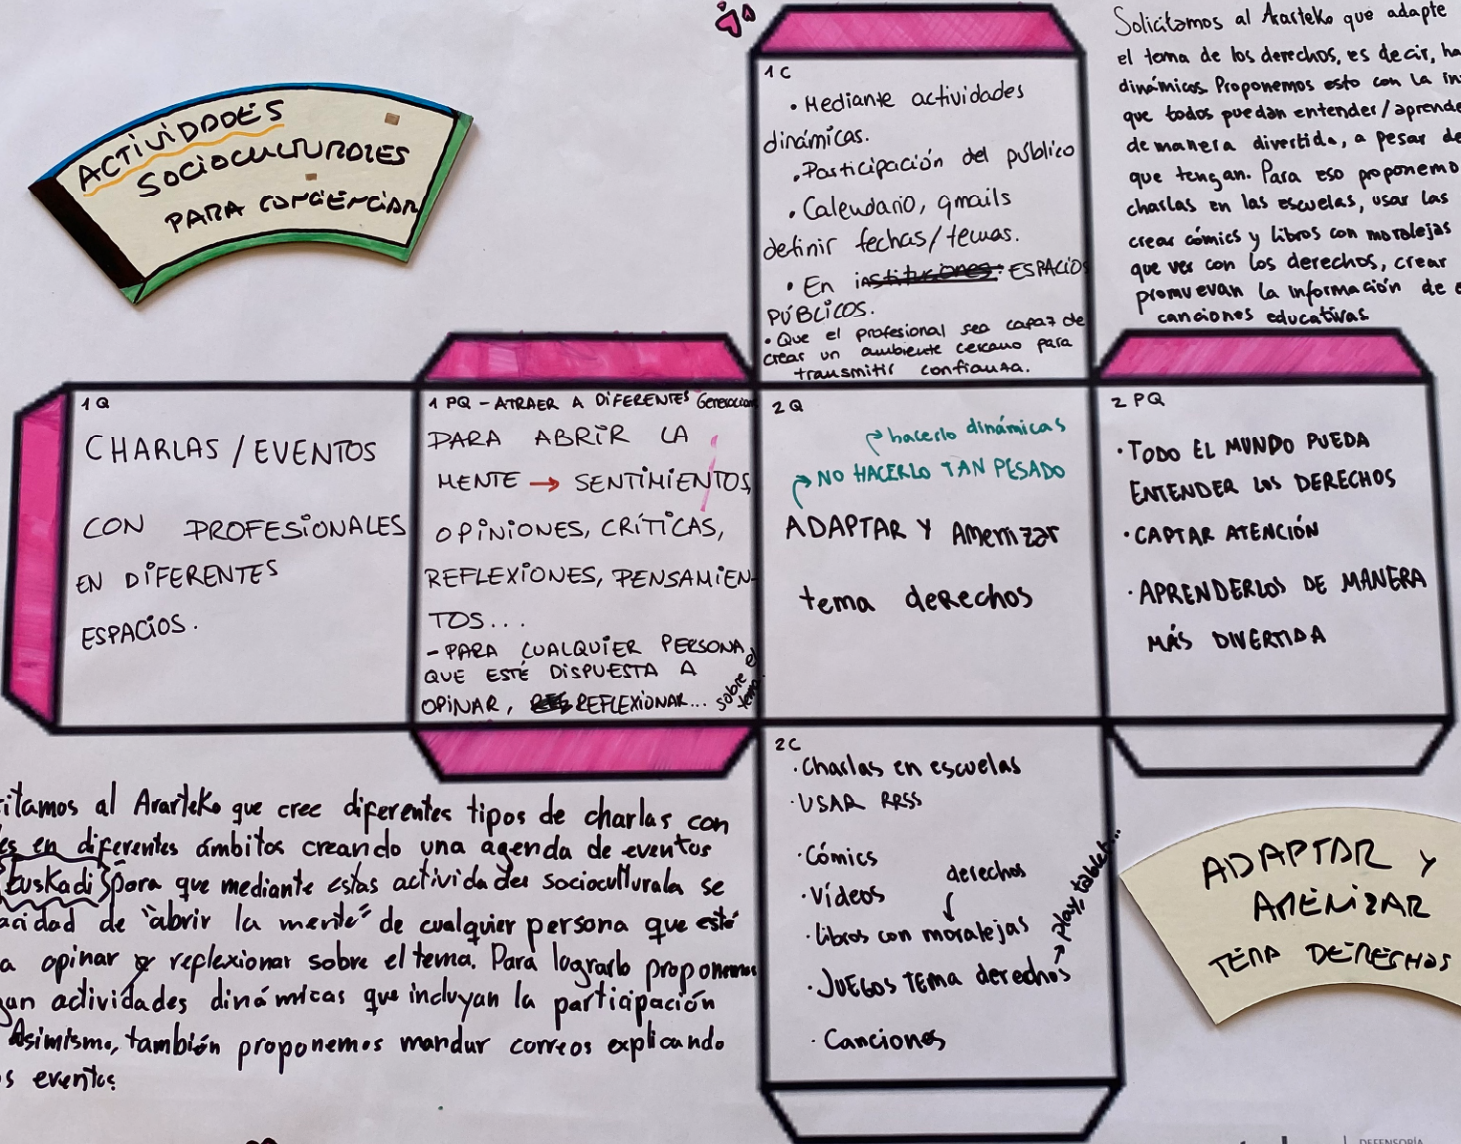 ACTIVIDADES
SOCIOCULTURALES
PARA CONCIENCIAR
1 C
• Mediante actividades
dinámicas.
• Participación del público
• Calendario, gmails
definir fechas/temas.
• En instituciones: ESPACIOS
PÚBLICOS.
• Que el profesional sea capaz de
crear un ambiente cercano para
transmitir confianza.
Solicitamos al Ararteko que adapte
el tema de los derechos, es decir, ha
dinámicos. Proponemos esto con la in
que todos puedan entender/aprende
de manera divertida, a pesar de
que tengan. Para eso proponemo
charlas en las escuelas, usar las
crear cómics y libros con moralejas
que ver con los derechos, crear
promuevan la información de e
canciones educativas
1 Q
CHARLAS / EVENTOS
CON PROFESIONALES
EN DIFERENTES
ESPACIOS.
1 PQ - ATRAER A DIFERENTES Generacion
PARA ABRIR LA
MENTE → SENTIMIENTOS,
OPINIONES, CRÍTICAS,
REFLEXIONES, PENSAMIEN-
TOS...
- PARA CUALQUIER PERSONA
QUE ESTÉ DISPUESTA A
OPINAR, REFLEXIONAR... sobre el
tema.
2 Q
hacerlo dinámicas
NO HACERLO TAN PESADO
ADAPTAR Y Amenizar
tema derechos
2 PQ
• TODO EL MUNDO PUEDA
ENTENDER LOS DERECHOS
• CAPTAR ATENCIÓN
• APRENDERLOS DE MANERA
MÁS DIVERTIDA
2C
• Charlas en escuelas
• USAR RRSS
• Cómics
• Vídeos
derechos
• libros con moralejas
• JUEGOS TEMA derechos → play, tablet...
• Canciones
itamos al Ararteko que cree diferentes tipos de charlas con
es en diferentes ámbitos creando una agenda de eventos
Euskadi para que mediante estas actividades socioculturala se
acidad de "abrir la mente" de cualquier persona que esté
a opinar y reflexionar sobre el tema. Para lograrlo proponemos
gan actividades dinámicas que incluyan la participación
Asimismo, también proponemos mandar correos explicando
s eventos
ADAPTAR Y
AMENIZAR
TEMA DERECHOS